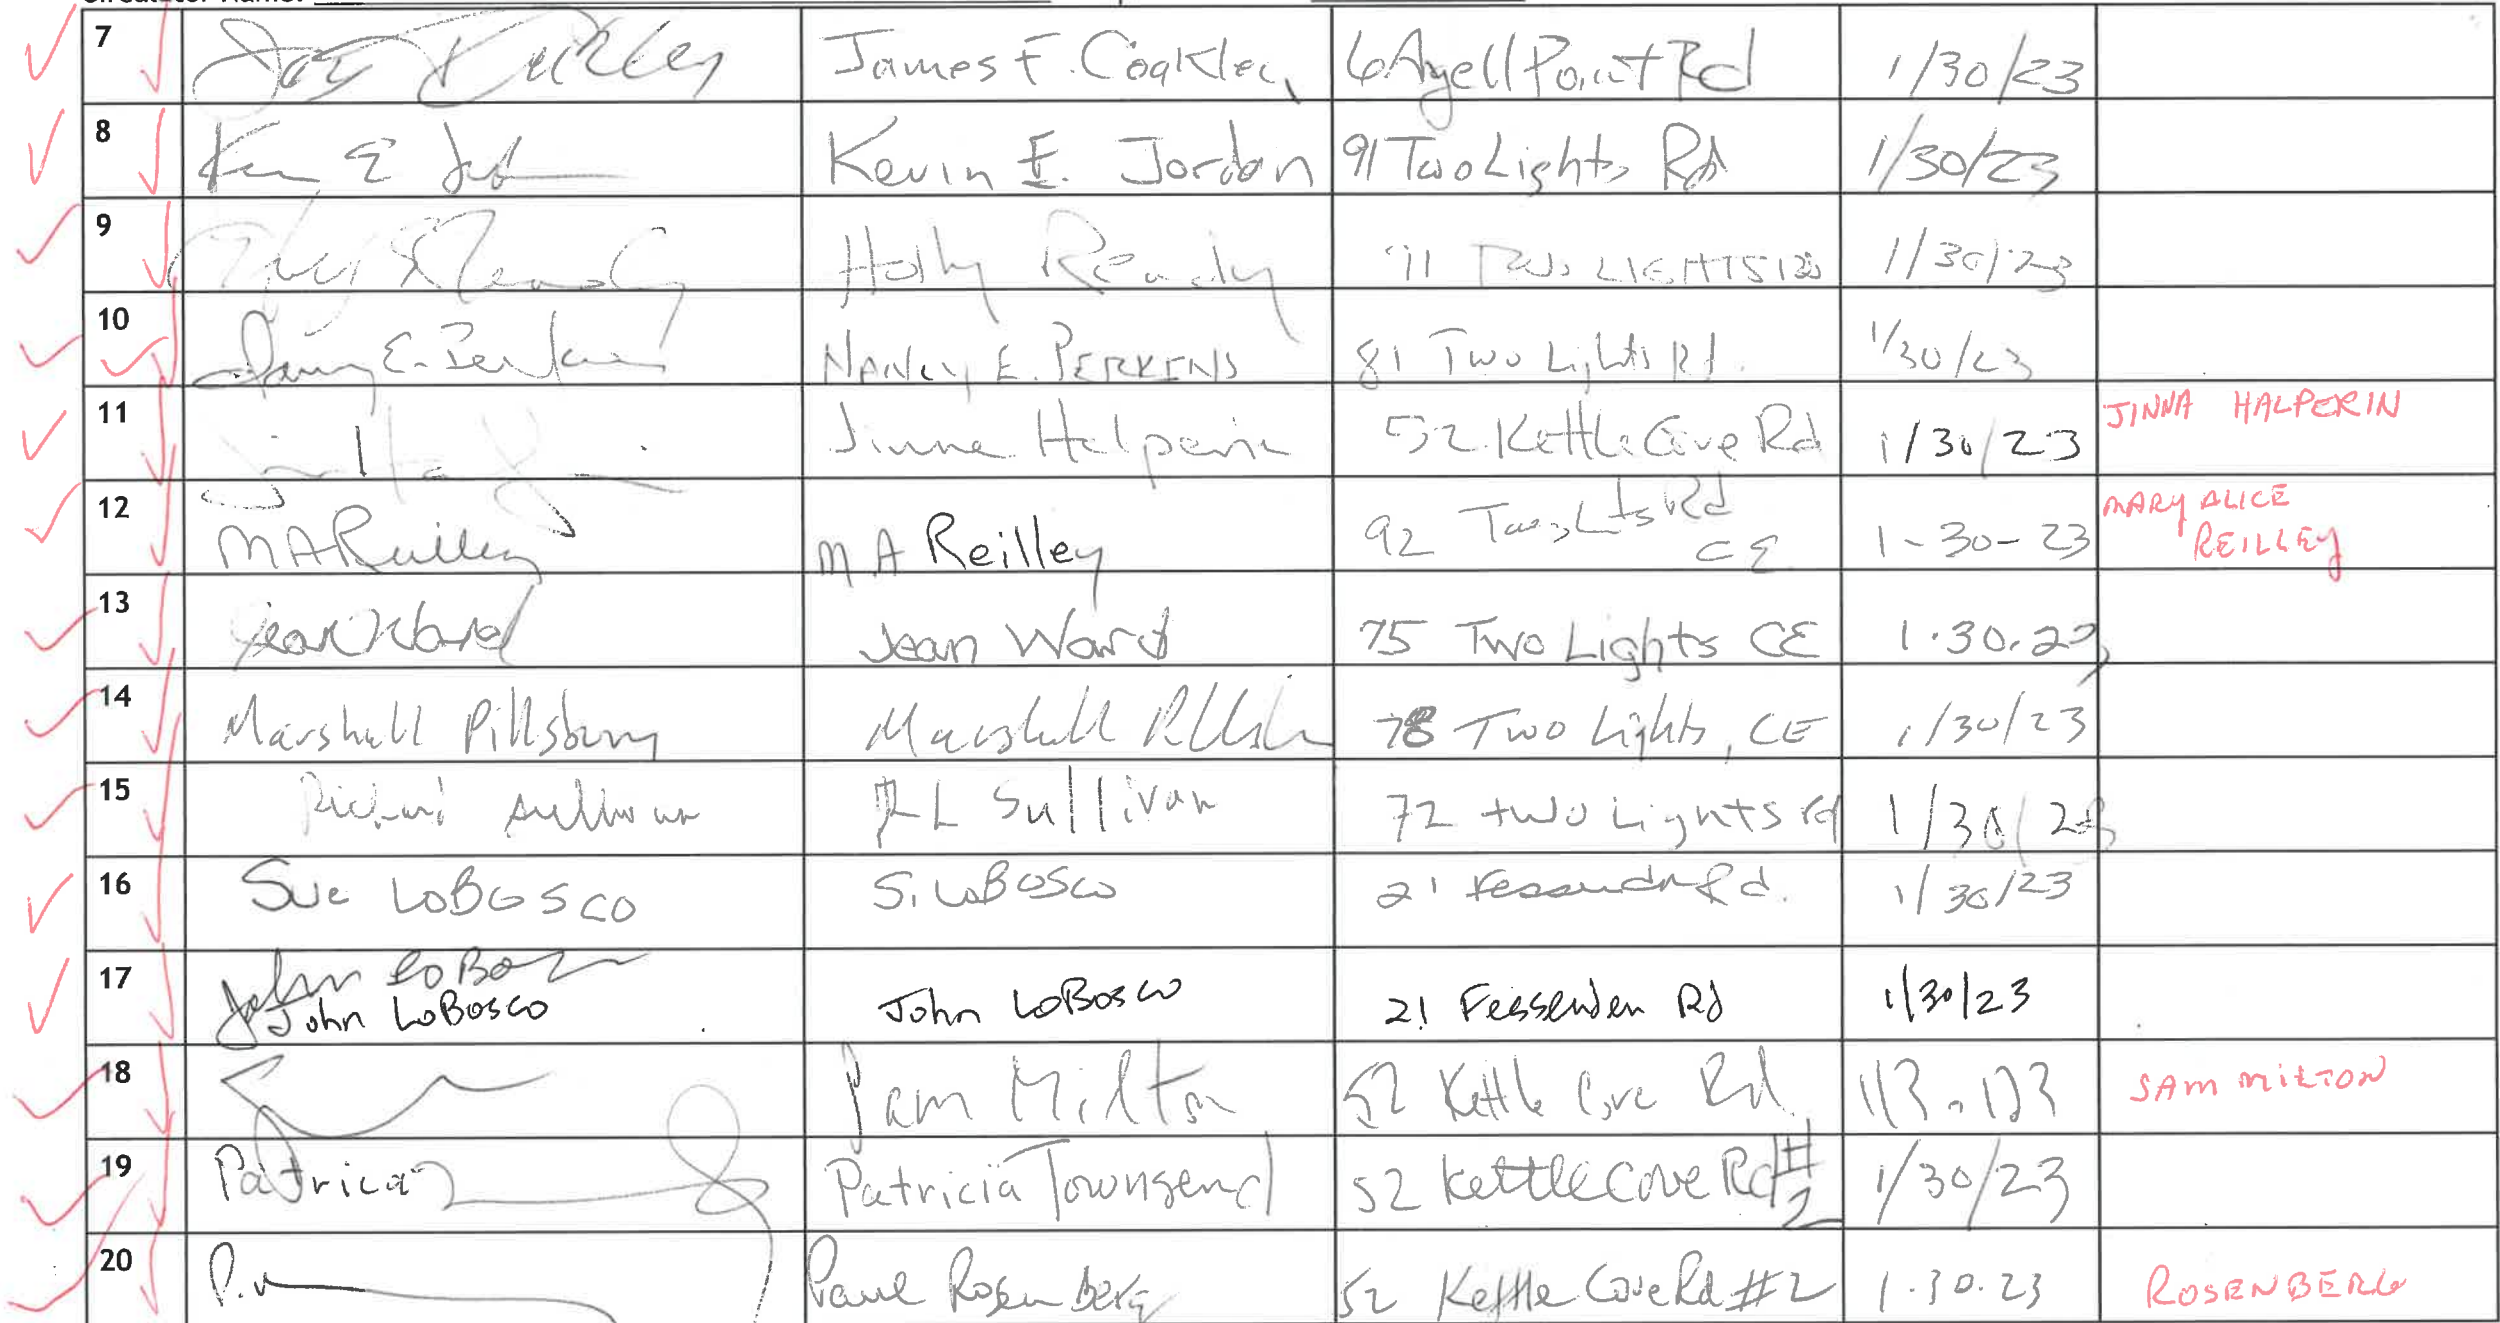 Circulator Name:
7 James F. Coakley 6 Angell Point Rd 1/30/23
8 Kevin E. Jordan 91 Two Lights Rd 1/30/23
9 Holly Ready 91 Two LIGHTS RD 1/30/23
10 Nancy E. Perkins NANCY E. PERKINS 81 Two Lights Rd. 1/30/23
11 Jinna Halperin 52 Kettle Cove Rd 1/30/23 JINNA HALPERIN
12 MAReilley MA Reilley 92 Two Lts Rd CE 1-30-23 MARY ALICE REILLEY
13 Jean Ward Jean Ward 75 Two Lights CE 1.30.23
14 Marshall Pillsbury Marshall 78 Two Lights, CE 1/30/23
15 Richard Sullivan RL Sullivan 72 two Lights rd 1/30/23
16 Sue LoBOSCO S. LoBOSCO 21 Fessenden Rd. 1/30/23
17 John LoBosco John LoBosco John LoBosco 21 Fessenden Rd 1/30/23
18 Sam Milton 52 Kettle Cove Rd 1/30/23 SAM MILTON
19 Patricia Patricia Townsend 52 Kettle Cove Rd #2 1/30/23
20 P. Paul Rosenberg 52 Kettle Cove Rd #2 1.30.23 ROSENBERG